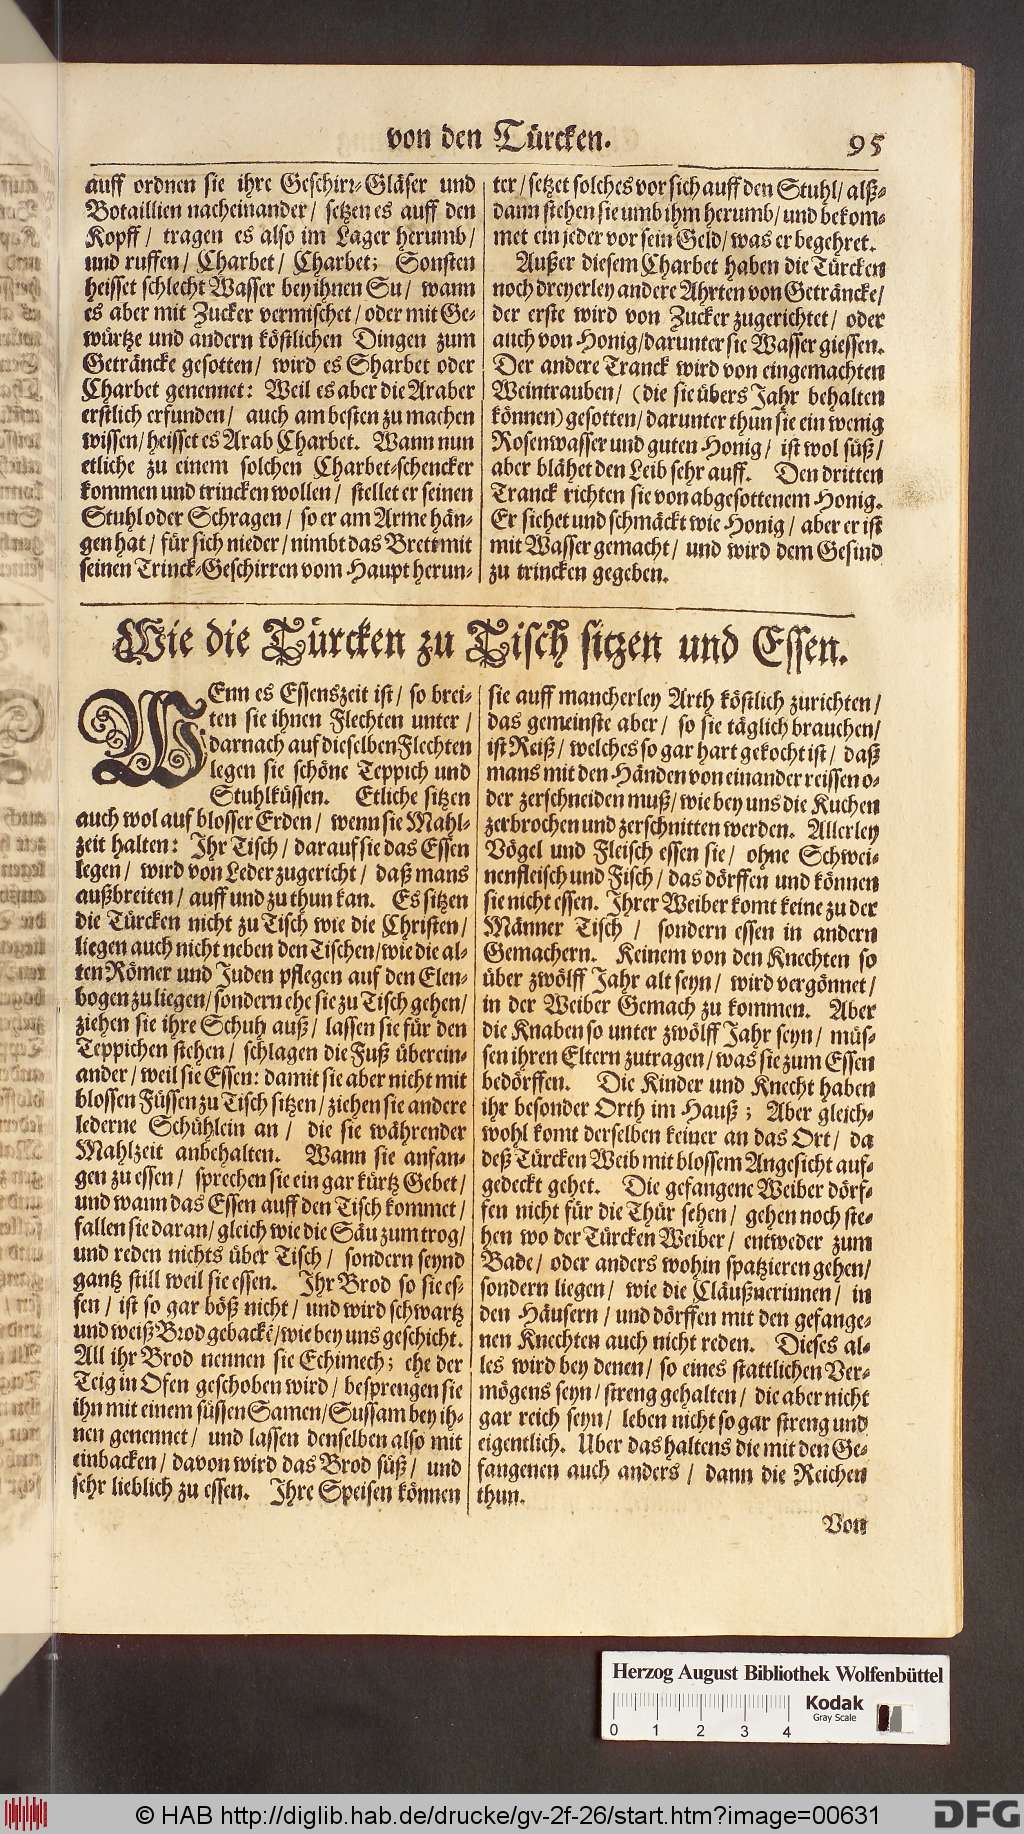 von den Türcken. 95
auff ordnen sie ihre Geschirr-Gläser und
Botaillien nacheinander / setzen es auff den
Kopff / tragen es also im Lager herumb /
und ruffen / Charbet / Charbet; Sonsten
heisset schlecht Wasser bey ihnen Su / wann
es aber mit Zucker vermischet / oder mit Ge-
würtze und andern köstlichen Dingen zum
Getråncke gesotten / wird es Sharbet oder
Charbet genennet: Weil es aber die Araber
erstlich erfunden / auch am besten zu machen
wissen / heisset es Arab Charbet. Wann nun
etliche zu einem solchen Charbet-schencker
kommen und trincken wollen / stellet er seinen
Stuhl oder Schragen / so er am Arme hän-
gen hat / für sich nieder / nimbt das Brett mit
seinen Trinck-Geschirren vom Haupt herun-
ter / setzet solches vor sich auff den Stuhl / alß-
dann stehen sie umb ihm herumb / und bekom-
met ein jeder vor sein Geld / was er begehret.
Außer diesem Charbet haben die Türcken
noch dreyerley andere Ahrten von Geträncke /
der erste wird von Zucker zugerichtet / oder
auch von Honig / darunter sie Wasser giessen.
Der andere Tranck wird von eingemachten
Weintrauben / (die sie übers Jahr behalten
können) gesotten / darunter thun sie ein wenig
Rosenwasser und guten Honig / ist wol süß /
aber blähet den Leib sehr auff. Den dritten
Tranck richten sie von abgesottenem Honig.
Er siehet und schmäckt wie Honig / aber er ist
mit Wasser gemacht / und wird dem Gesind
zu trincken gegeben.
Wie die Türcken zu Tisch sitzen und Essen.
WEnn es Essenszeit ist / so brei-
ten sie ihnen Flechten unter /
darnach auf dieselben Flechten
legen sie schöne Teppich und
Stuhlküssen. Etliche sitzen
auch wol auf blosser Erden / wenn sie Mahl-
zeit halten: Ihr Tisch / darauf sie das Essen
legen / wird von Leder zugericht / daß mans
außbreiten / auff und zu thun kan. Es sitzen
die Türcken nicht zu Tisch wie die Christen /
liegen auch nicht neben den Tischen / wie die al-
ten Römer und Juden pflegen auf den Elen-
bogen zu liegen / sondern ehe sie zu Tisch gehen /
ziehen sie ihre Schuh auß / lassen sie für den
Teppichen stehen / schlagen die Fuß überein-
ander / weil sie Essen: damit sie aber nicht mit
blossen Füssen zu Tisch sitzen / ziehen sie andere
lederne Schühlein an / die sie währender
Mahlzeit anbehalten. Wann sie anfan-
gen zu essen / sprechen sie ein gar kürtz Gebet /
und wann das Essen auff den Tisch kommet /
fallen sie daran / gleich wie die Säu zum trog /
und reden nichts über Tisch / sondern seynd
gantz still weil sie essen. Ihr Brod so sie es-
sen / ist so gar böß nicht / und wird schwartz
und weiß Brod gebackē / wie bey uns geschicht.
All ihr Brod nennen sie Echimech; ehe der
Teig in Ofen geschoben wird / besprengen sie
ihn mit einem süssen Samen / Sussam bey ih-
nen genennet / und lassen denselben also mit
einbacken / davon wird das Brod süß / und
sehr lieblich zu essen. Ihre Speisen können
sie auff mancherley Arth köstlich zurichten /
das gemeinste aber / so sie täglich brauchen /
ist Reiß / welches so gar hart gekocht ist / daß
mans mit den Händen von einander reissen o-
der zerschneiden muß / wie bey uns die Kuchen
zerbrochen und zerschnitten werden. Allerley
Vögel und Fleisch essen sie / ohne Schwei-
nenfleisch und Fisch / das dörffen und können
sie nicht essen. Ihrer Weiber komt keine zu der
Männer Tisch / sondern essen in andern
Gemachern. Keinem von den Knechten so
über zwölff Jahr alt seyn / wird vergönnet /
in der Weiber Gemach zu kommen. Aber
die Knaben so unter zwölff Jahr seyn / müs-
sen ihren Eltern zutragen / was sie zum Essen
bedörffen. Die Kinder und Knecht haben
ihr besonder Orth im Hauß; Aber gleich-
wohl komt derselben keiner an das Ort / da
deß Türcken Weib mit blossem Angesicht auf-
gedeckt gehet. Die gefangene Weiber dörf-
fen nicht für die Thür sehen / gehen noch ste-
hen wo der Türcken Weiber / entweder zum
Bade / oder anders wohin spatzieren gehen /
sondern liegen / wie die Cläußnerinnen / in
den Häusern / und dörffen mit den gefange-
nen Knechten auch nicht reden. Dieses al-
les wird bey denen / so eines stattlichen Ver-
mögens seyn / streng gehalten / die aber nicht
gar reich seyn / leben nicht so gar streng und
eigentlich. Uber das haltens die mit den Ge-
fangenen auch anders / dann die Reichen
thun.
Von
Herzog August Bibliothek Wolfenbüttel
Kodak
Gray Scale
0 1 2 3 4
© HAB http://diglib.hab.de/drucke/gv-2f-26/start.htm?image=00631
DFG